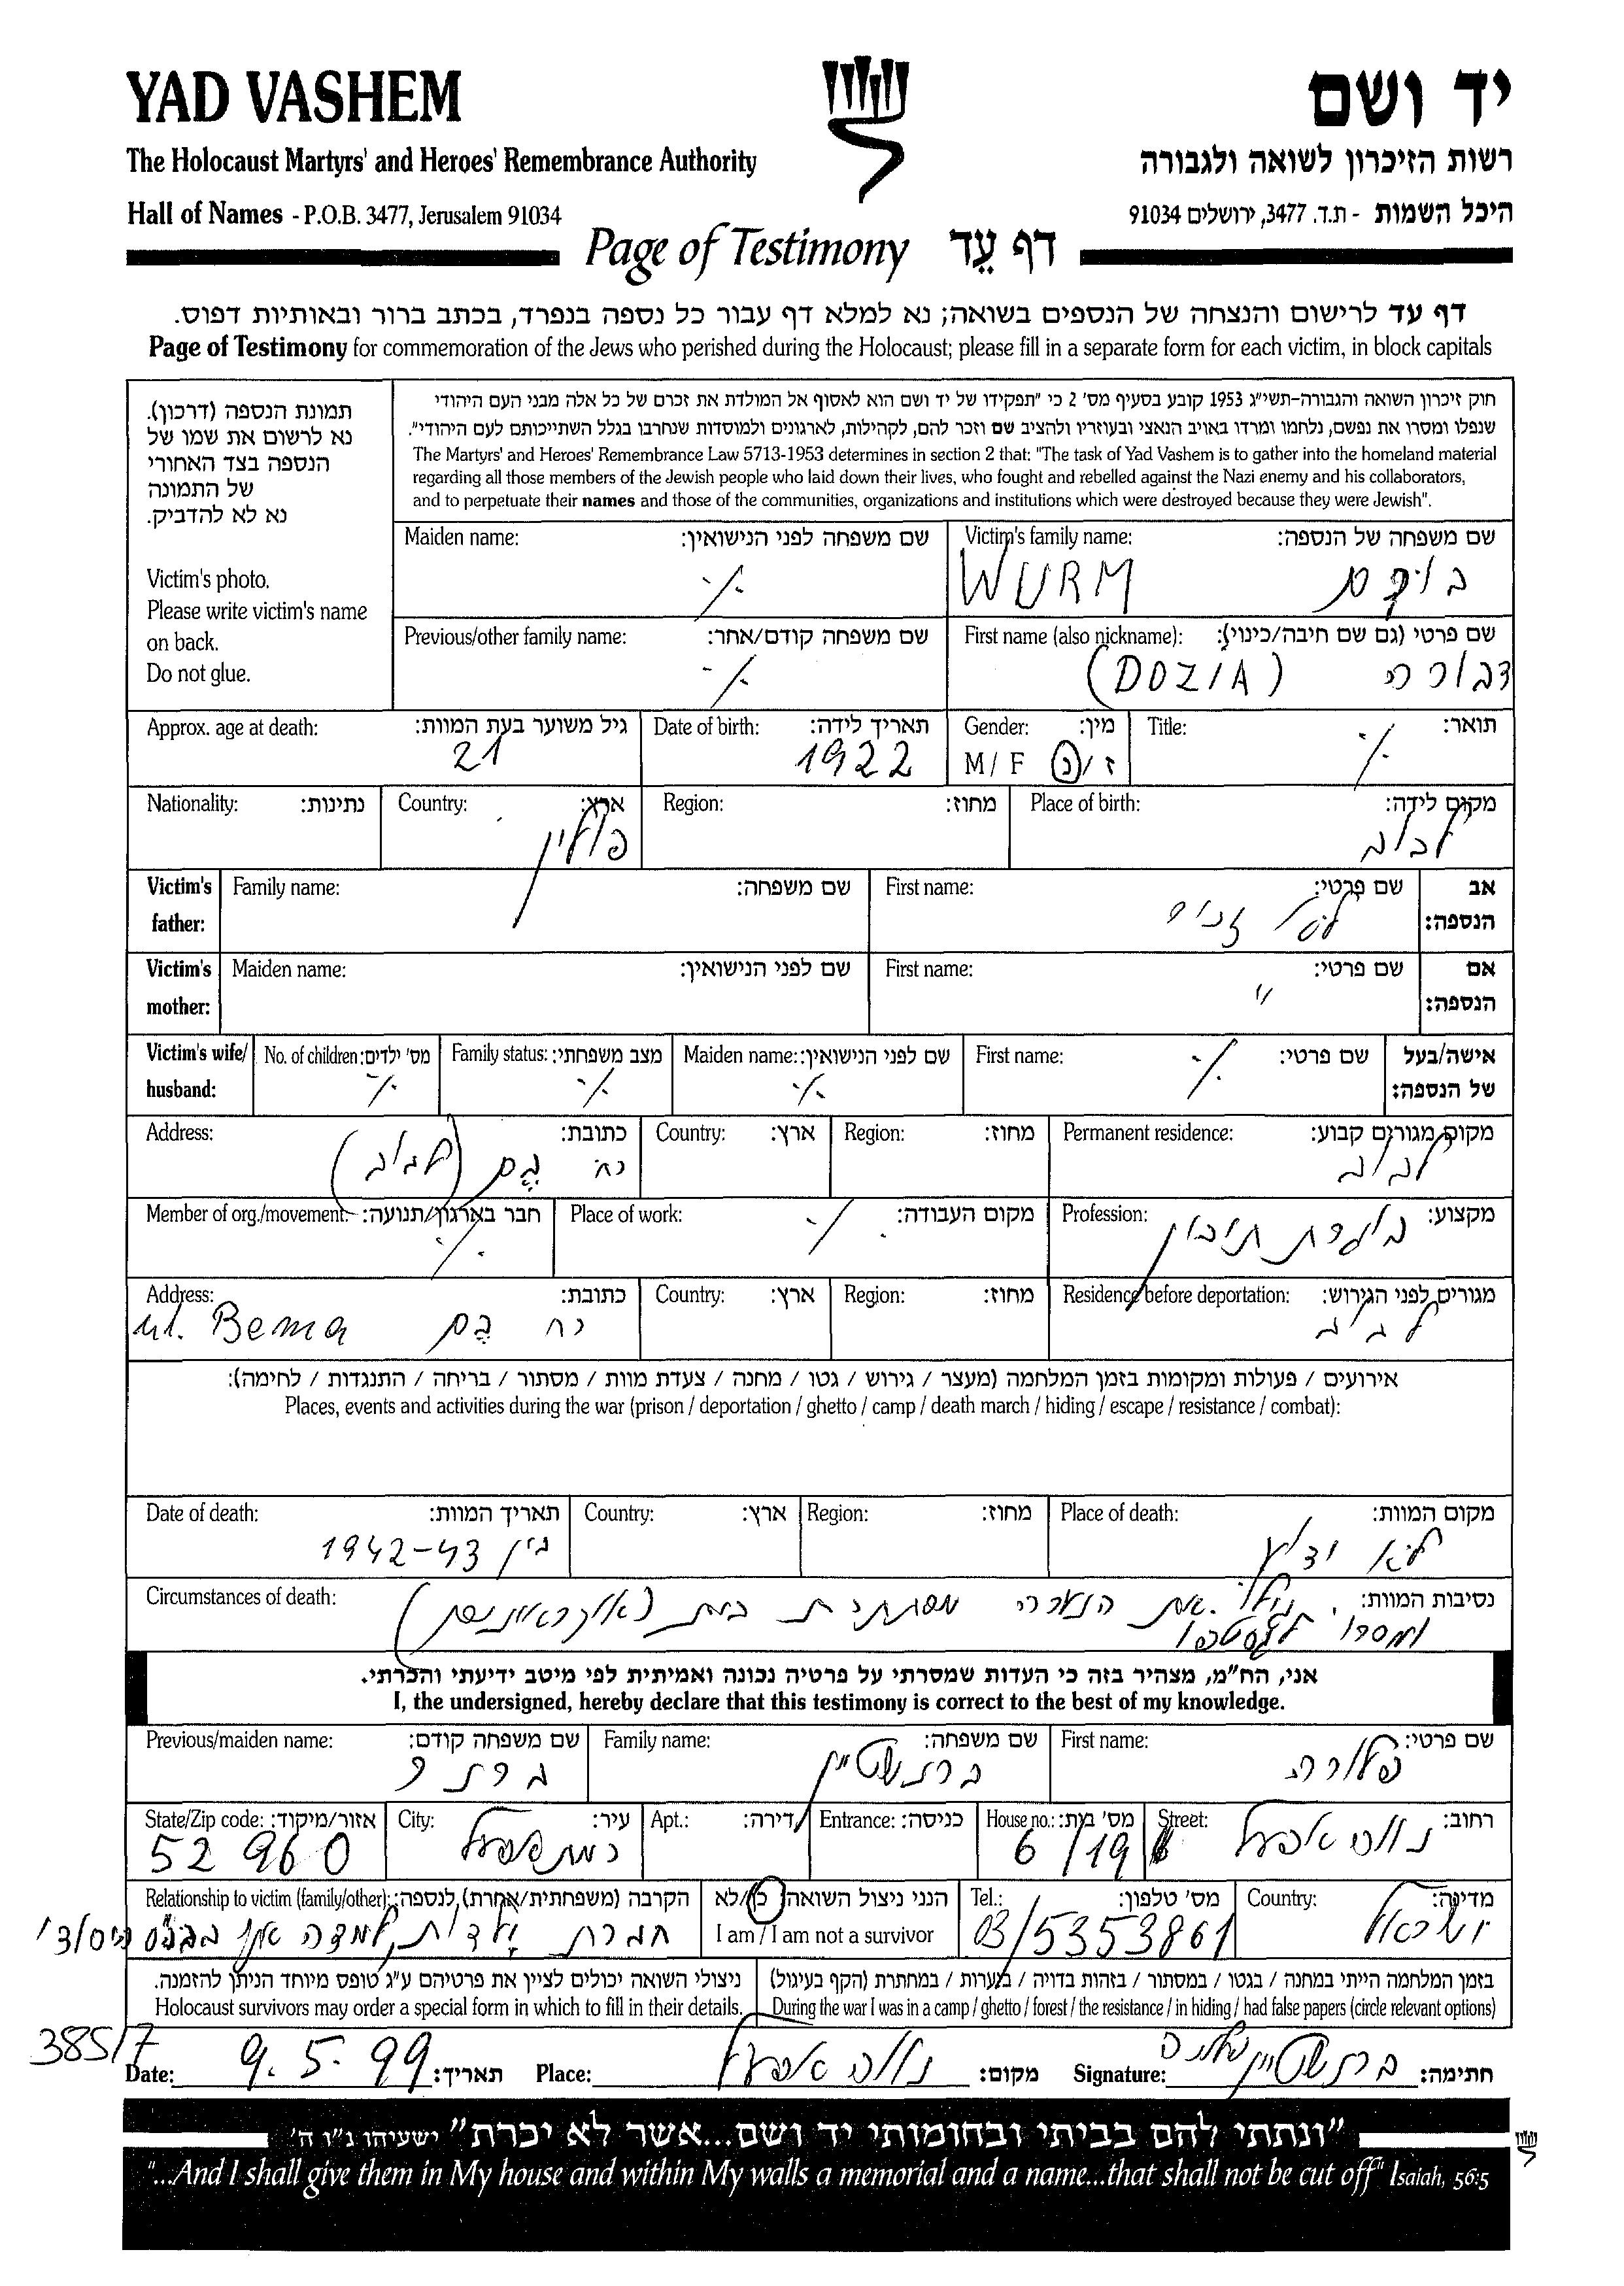 YAD VASHEM
יד ושם
The Holocaust Martyrs' and Heroes' Remembrance Authority
רשות הזיכרון לשואה ולגבורה
Hall of Names - P.O.B. 3477, Jerusalem 91034
היכל השמות - ת.ד. 3477, ירושלים 91034
Page of Testimony דף עֵד
דף עד לרישום והנצחה של הנספים בשואה; נא למלא דף עבור כל נספה בנפרד, בכתב ברור ובאותיות דפוס.
Page of Testimony for commemoration of the Jews who perished during the Holocaust; please fill in a separate form for each victim, in block capitals
תמונת הנספה (דרכון).
נא לרשום את שמו של
הנספה בצד האחורי
של התמונה
נא לא להדביק.
Victim's photo.
Please write victim's name
on back.
Do not glue.
חוק זיכרון השואה והגבורה-תשי"ג 1953 קובע בסעיף מס' 2 כי "תפקידו של יד ושם הוא לאסוף אל המולדת את זכרם של כל אלה מבני העם היהודי
שנפלו ומסרו את נפשם, נלחמו ומרדו באויב הנאצי ובעוזריו ולהציב שם וזכר להם, לקהילות, לארגונים ולמוסדות שנחרבו בגלל השתייכותם לעם היהודי".
The Martyrs' and Heroes' Remembrance Law 5713-1953 determines in section 2 that: "The task of Yad Vashem is to gather into the homeland material
regarding all those members of the Jewish people who laid down their lives, who fought and rebelled against the Nazi enemy and his collaborators,
and to perpetuate their names and those of the communities, organizations and institutions which were destroyed because they were Jewish".
Victim's family name: שם משפחה של הנספה:
WURM
Maiden name: שם משפחה לפני הנישואין:
First name (also nickname): שם פרטי (גם שם חיבה/כינוי):
דבורה (DOZIA)
Previous/other family name: שם משפחה קודם/אחר:
Title: תואר:
Gender: מין:
M / F ז / נ
Date of birth: תאריך לידה:
1922
Approx. age at death: גיל משוער בעת המוות:
21
Place of birth: מקום לידה:
לבוב
Region: מחוז:
Country: ארץ:
פולין
Nationality: נתינות:
Victim's father: אב הנספה:
First name: שם פרטי:
לא זכור
Family name: שם משפחה:
Victim's mother: אם הנספה:
First name: שם פרטי:
"
Maiden name: שם לפני הנישואין:
Victim's wife/husband: אישה/בעל של הנספה:
First name: שם פרטי:
Maiden name: שם לפני הנישואין:
Family status: מצב משפחתי:
No. of children: מס' ילדים:
Permanent residence: מקום מגורים קבוע:
לבוב
Region: מחוז:
Country: ארץ:
Address: כתובת:
רח בֶּם (לבוב)
Profession: מקצוע:
בוגרת תיכון
Place of work: מקום העבודה:
Member of org./movement: חבר בארגון/תנועה:
Residence before deportation: מגורים לפני הגירוש:
לבוב
Region: מחוז:
Country: ארץ:
Address: כתובת:
רח בֶּם ul. Bema
אירועים / פעולות ומקומות בזמן המלחמה (מעצר / גירוש / גטו / מחנה / צעדת מוות / מסתור / בריחה / התנגדות / לחימה):
Places, events and activities during the war (prison / deportation / ghetto / camp / death march / hiding / escape / resistance / combat):
Place of death: מקום המוות:
לא ידוע
Region: מחוז:
Country: ארץ:
Date of death: תאריך המוות:
בין 1942-43
Circumstances of death: נסיבות המוות:
גילו את הנערה מסתתרת
ומסרו לגסטפו
אני, הח"מ, מצהיר בזה כי העדות שמסרתי על פרטיה נכונה ואמיתית לפי מיטב ידיעתי והכרתי.
I, the undersigned, hereby declare that this testimony is correct to the best of my knowledge.
First name: שם פרטי:
פלורה
Family name: שם משפחה:
ברנשטיין
Previous/maiden name: שם משפחה קודם:
Street: רחוב:
House no.: מס' בית:
6/19
Entrance: כניסה:
Apt.: דירה:
City: עיר:
רמת אפעל
State/Zip code: אזור/מיקוד:
52960
Country: מדינה:
ישראל
Tel.: מס' טלפון:
03/5353861
הנני ניצול השואה: כן/לא
I am / I am not a survivor
Relationship to victim (family/other): הקרבה (משפחתית/אחרת) לנספה:
חברת ילדות, למדה
בזמן המלחמה הייתי במחנה / בגטו / במסתור / בזהות בדויה / ביערות / במחתרת (הקף בעיגול)
During the war I was in a camp / ghetto / forest / the resistance / in hiding / had false papers (circle relevant options)
ניצולי השואה יכולים לציין את פרטיהם ע"ג טופס מיוחד הניתן להזמנה.
Holocaust survivors may order a special form in which to fill in their details.
385/7
Date: 9.5.99 תאריך:
Place: מקום:
Signature: ברנשטיין פלורה חתימה:
"ונתתי להם בביתי ובחומותי יד ושם...אשר לא יכרת" ישעיהו נ"ו ה'
"...And I shall give them in My house and within My walls a memorial and a name...that shall not be cut off" Isaiah, 56:5